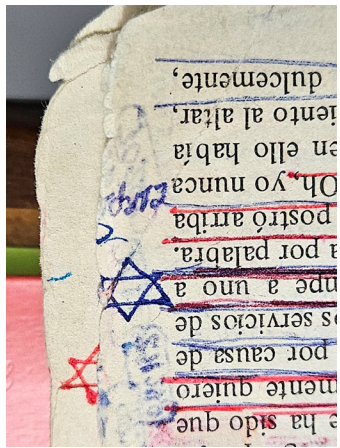 e ha sido que
mente quiero
por causa de
os servicios de
mpe a uno a
a por palabra.
postró arriba
Oh, yo nunca
en ello había
iento al altar,
dulcemente,